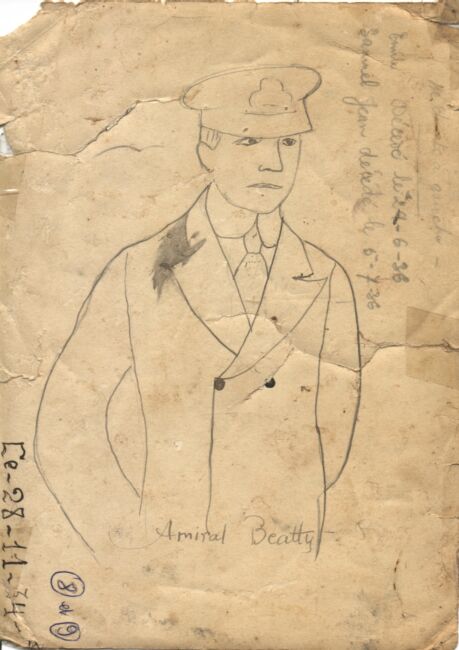 Emile Décédé le 24-6-36
Samuel Jean décédé le 5-7-36
Amiral Beatty
Le-28-11-34
8 et 9